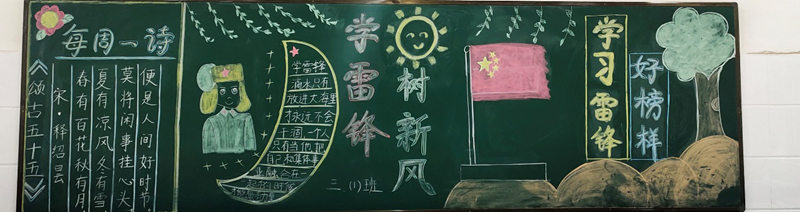 每周一诗
《颂古五十五》
宋·释绍昙
春有百花秋有月
夏有凉风冬有雪
莫将闲事挂心头
便是人间好时节
学雷锋
滴水只有
放进大海里
才永远不会
干涸一个人
只有当他把
自己和集体事
业融合在一
学雷锋
树新风
三、(1)班
学习雷锋
好榜样